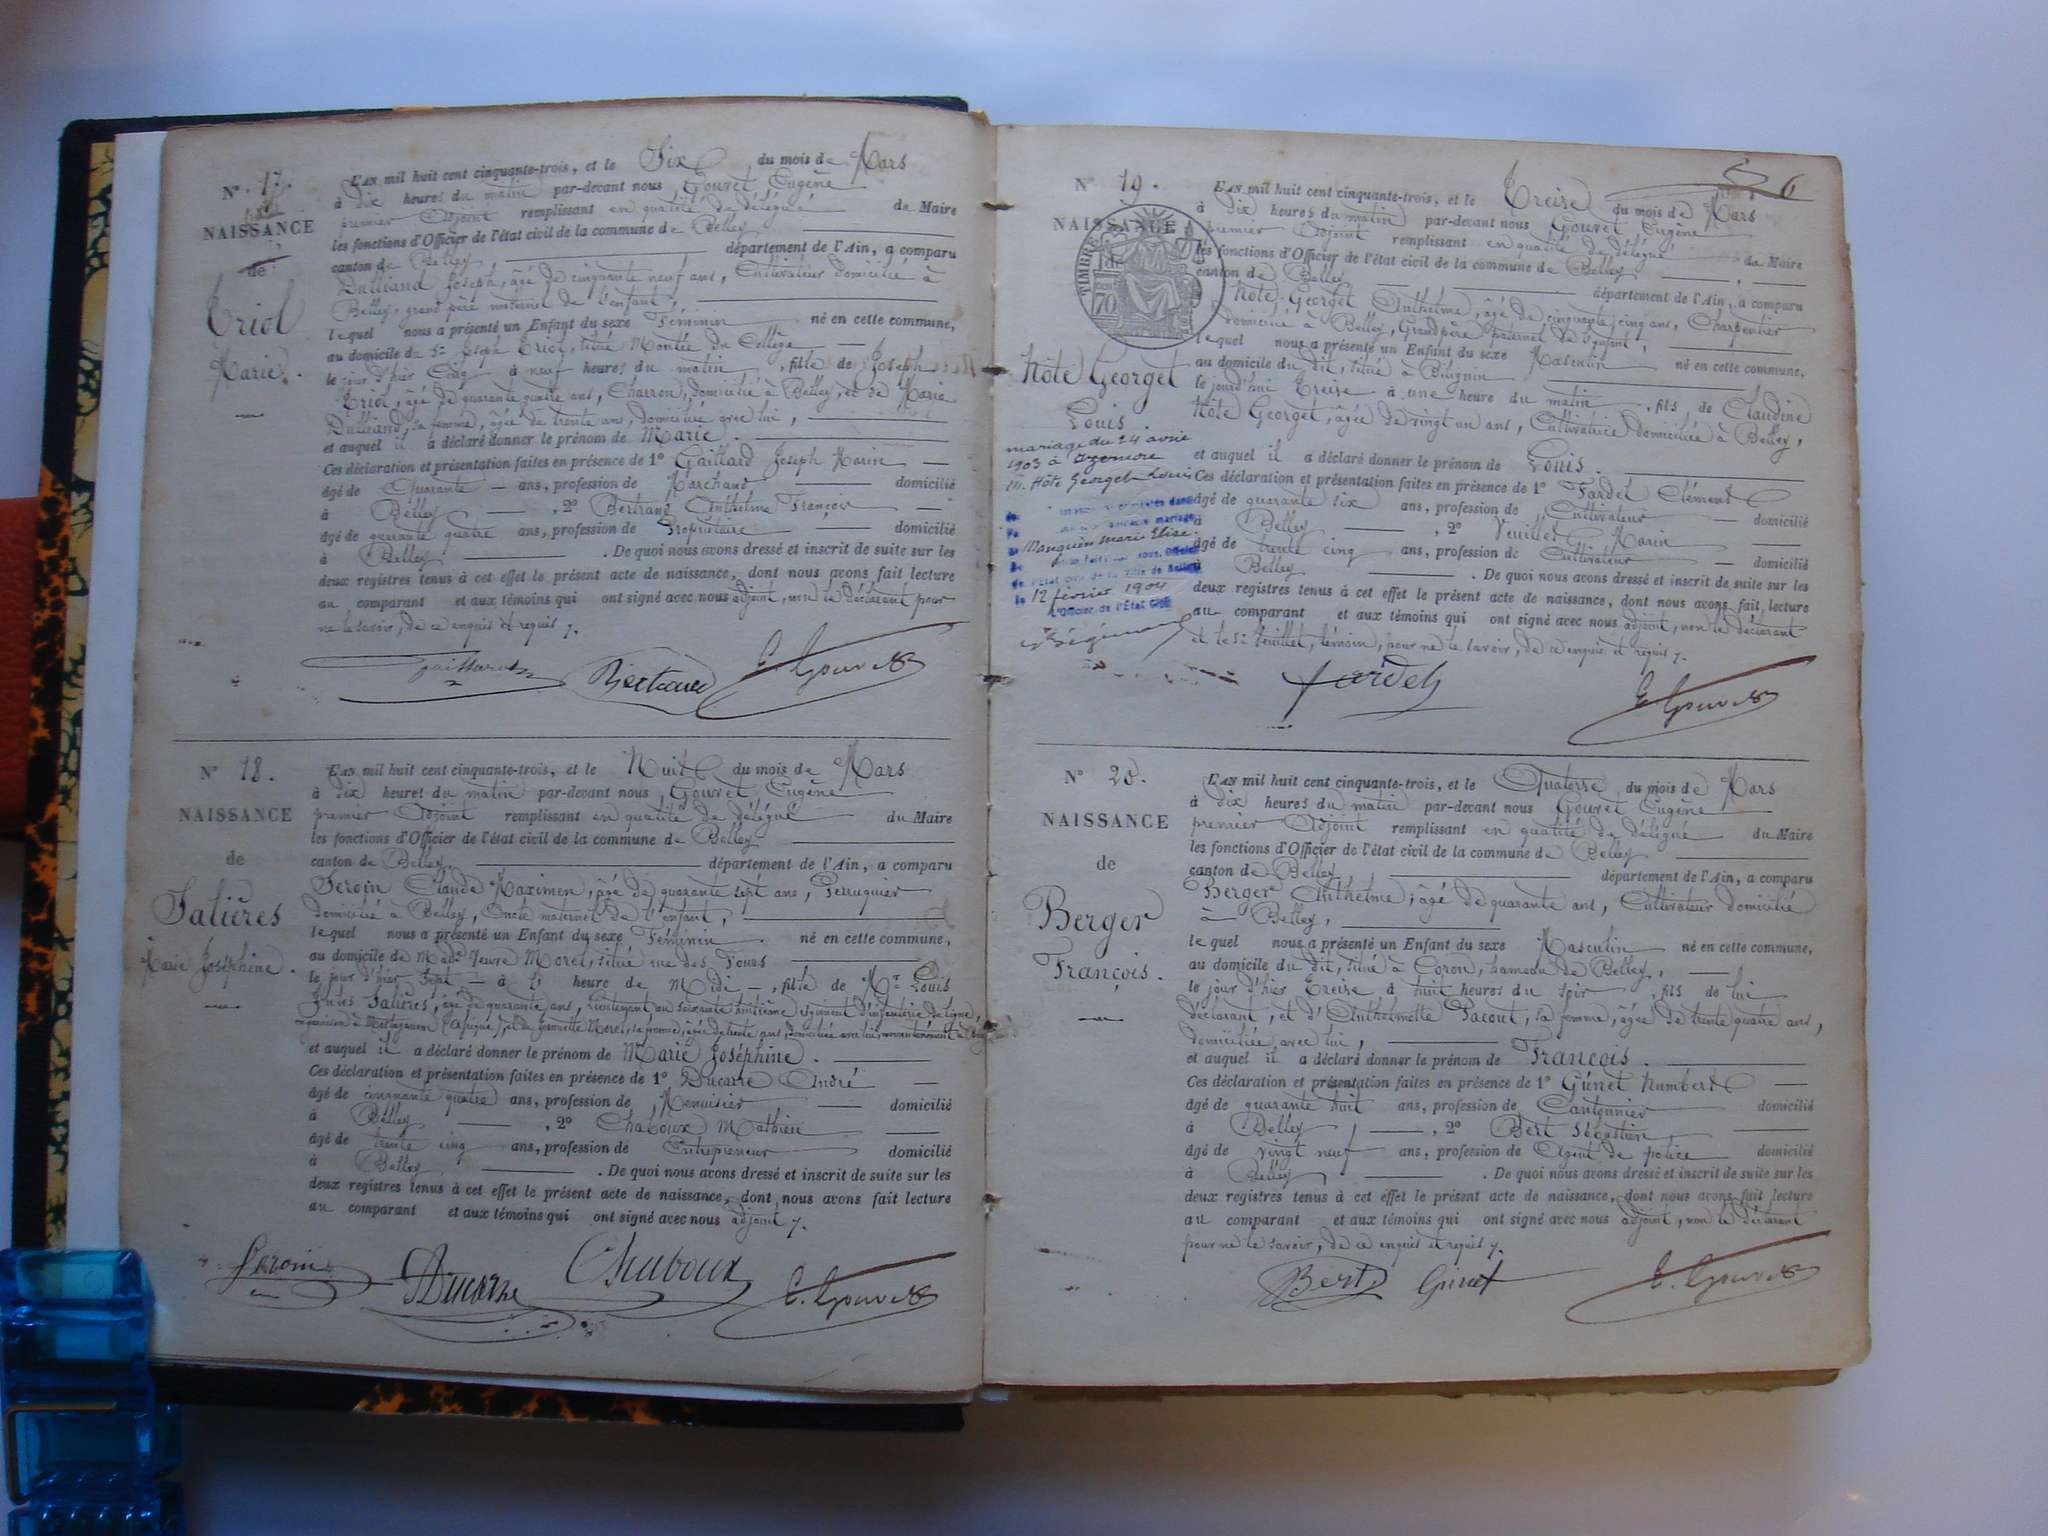 N° 17.
NAISSANCE
de
Triol
Marie.
L'AN mil huit cent cinquante-trois, et le Six du mois de Mars
à Dix heures du matin par-devant nous Gouvet Eugène
premier Adjoint remplissant en qualité de délégué du Maire
les fonctions d'Officier de l'état civil de la commune de Belley
canton de Belley, département de l'Ain, a comparu
Dulliand Joseph, âgé de cinquante neuf ans, Cultivateur domicilié à
Belley, grand père maternel de l'enfant,
lequel nous a présenté un Enfant du sexe Féminin né en cette commune,
au domicile de Sr Joseph Triol, situé Montée du Collège
le jour d'hier Cinq à neuf heures du matin, fille de Joseph
Triol, âgé de quarante quatre ans, Charron, domicilié à Belley, et de Marie
Dulliand, sa femme, âgée de trente ans, domiciliée avec lui,
et auquel il a déclaré donner le prénom de Marie.
Ces déclaration et présentation faites en présence de 1° Gaillard Joseph Marin
âgé de Quarante ans, profession de Marchand domicilié
à Belley, 2° Bertrand Anthelme François
âgé de quarante quatre ans, profession de Propriétaire domicilié
à Belley. De quoi nous avons dressé et inscrit de suite sur les
deux registres tenus à cet effet le présent acte de naissance, dont nous avons fait lecture
au comparant et aux témoins qui ont signé avec nous adjoint, non le déclarant pour
ne le savoir, de ce enquis et requis.
Gaillard Bertrand E. Gouvet
N° 18.
NAISSANCE
de
Salières
Marie Joséphine.
L'AN mil huit cent cinquante-trois, et le Huit du mois de Mars
à Dix heures du matin par-devant nous Gouvet Eugène
premier Adjoint remplissant en qualité de délégué du Maire
les fonctions d'Officier de l'état civil de la commune de Belley
canton de Belley département de l'Ain, a comparu
Seroin Claude Maximen, âgé de quarante sept ans, Perruquier
domicilié à Belley, Oncle maternel de l'enfant,
lequel nous a présenté un Enfant du sexe Féminin né en cette commune,
au domicile de Made Veuve Morel, situé rue des Fours
le jour d'hier Sept à l' heure de Midi, fille de Mr Louis
Jules Salières, âgé de quarante ans, Lieutenant au soixante huitième régiment d'infanterie de ligne,
en garnison à Mostaganem (Afrique), et de Morel, sa femme, âgée de trente ans, domiciliée avec lui, momentanément à Belley
et auquel il a déclaré donner le prénom de Marie Joséphine.
Ces déclaration et présentation faites en présence de 1° Ducarre André
âgé de cinquante quatre ans, profession de Menuisier domicilié
à Belley, 2° Chaboux Mathieu
âgé de trente cinq ans, profession de Entrepreneur domicilié
à Belley. De quoi nous avons dressé et inscrit de suite sur les
deux registres tenus à cet effet le présent acte de naissance, dont nous avons fait lecture
au comparant et aux témoins qui ont signé avec nous adjoint.
Seroin Ducarre Chaboux E. Gouvet
6
N° 19.
NAISSANCE
TIMBRE
70
Hôte Georget
Louis
mariage du 24 avril
1903 à Izernore
M. Hôte Georget Louis
Monguin Marie Elise.
de l'Etat civil de la Ville de Belley
le 12 février 1904
L'Officier de l'État Civil
L'AN mil huit cent cinquante-trois, et le Treize du mois de Mars
à Dix heures du matin par-devant nous Gouvet Eugène
premier Adjoint remplissant en qualité de délégué du Maire
les fonctions d'Officier de l'état civil de la commune de Belley
canton de Belley département de l'Ain, a comparu
Hôte Georget Anthelme, âgé de cinquante cinq ans, Charpentier
domicilié à Belley, Grand père paternel de l'enfant,
lequel nous a présenté un Enfant du sexe Masculin né en cette commune,
au domicile du dit, situé à Billignin
le jourd'hui Treize à une heure du matin, fils de Claudine
Hôte Georget, âgée de vingt un ans, Cultivatrice domiciliée à Belley,
et auquel il a déclaré donner le prénom de Louis.
Ces déclaration et présentation faites en présence de 1° Fardel Clément
âgé de quarante six ans, profession de Cultivateur domicilié
à Belley, 2° Veuillet Marin
âgé de trente cinq ans, profession de Cultivateur domicilié
à Belley. De quoi nous avons dressé et inscrit de suite sur les
deux registres tenus à cet effet le présent acte de naissance, dont nous avons fait lecture
au comparant et aux témoins qui ont signé avec nous adjoint, non le déclarant
et le Sr Veuillet, témoin, pour ne le savoir, de ce enquis et requis.
fardel E. Gouvet
N° 20.
NAISSANCE
de
Berger
François.
L'AN mil huit cent cinquante-trois, et le Quatorze du mois de Mars
à Dix heures du matin par-devant nous Gouvet Eugène
premier Adjoint remplissant en qualité de délégué du Maire
les fonctions d'Officier de l'état civil de la commune de Belley
canton de Belley département de l'Ain, a comparu
Berger Anthelme, âgé de quarante ans, Cultivateur domicilié
à Belley,
lequel nous a présenté un Enfant du sexe Masculin né en cette commune,
au domicile du dit, situé à Coron, hameau de Belley,
le jour d'hier Treize à huit heures du soir, fils de lui
déclarant, et d'Anthelmette Pacout, sa femme, âgée de trente quatre ans,
domiciliée avec lui,
et auquel il a déclaré donner le prénom de François.
Ces déclaration et présentation faites en présence de 1° Ginet Humbert
âgé de quarante huit ans, profession de Cantonnier domicilié
à Belley, 2° Bert Sébastien,
âgé de vingt neuf ans, profession de Agent de police domicilié
à Belley. De quoi nous avons dressé et inscrit de suite sur les
deux registres tenus à cet effet le présent acte de naissance, dont nous avons fait lecture
au comparant et aux témoins qui ont signé avec nous adjoint, non le déclarant
pour ne le savoir, de ce enquis et requis.
Bert Ginet E. Gouvet